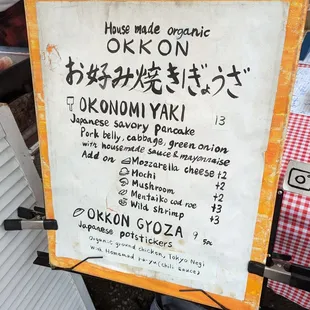 House made organic
OKKON
お好み焼きぎょうざ
OKONOMIYAKI 13
Japanese savory pancake
Pork belly, cabbage, green onion
with housemade sauce & mayonnaise
Add on Mozzarella cheese +2
Mochi +2
Mushroom +2
Mentaiko cod roe +3
Wild shrimp +3
OKKON GYOZA 9 5pc
Japanese potstickers
Organic ground chicken, Tokyo Negi
with Homemade ra-yu (chili sauce)